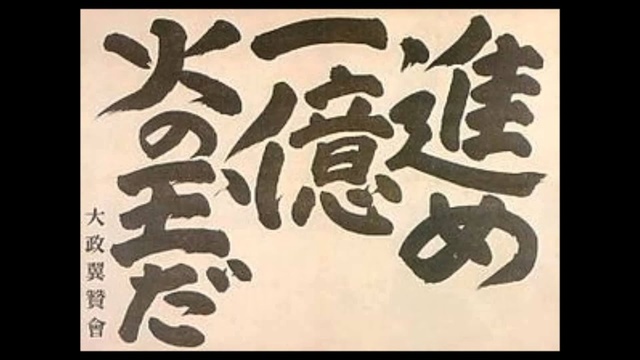 進め
一億
火の玉だ
大政翼賛會